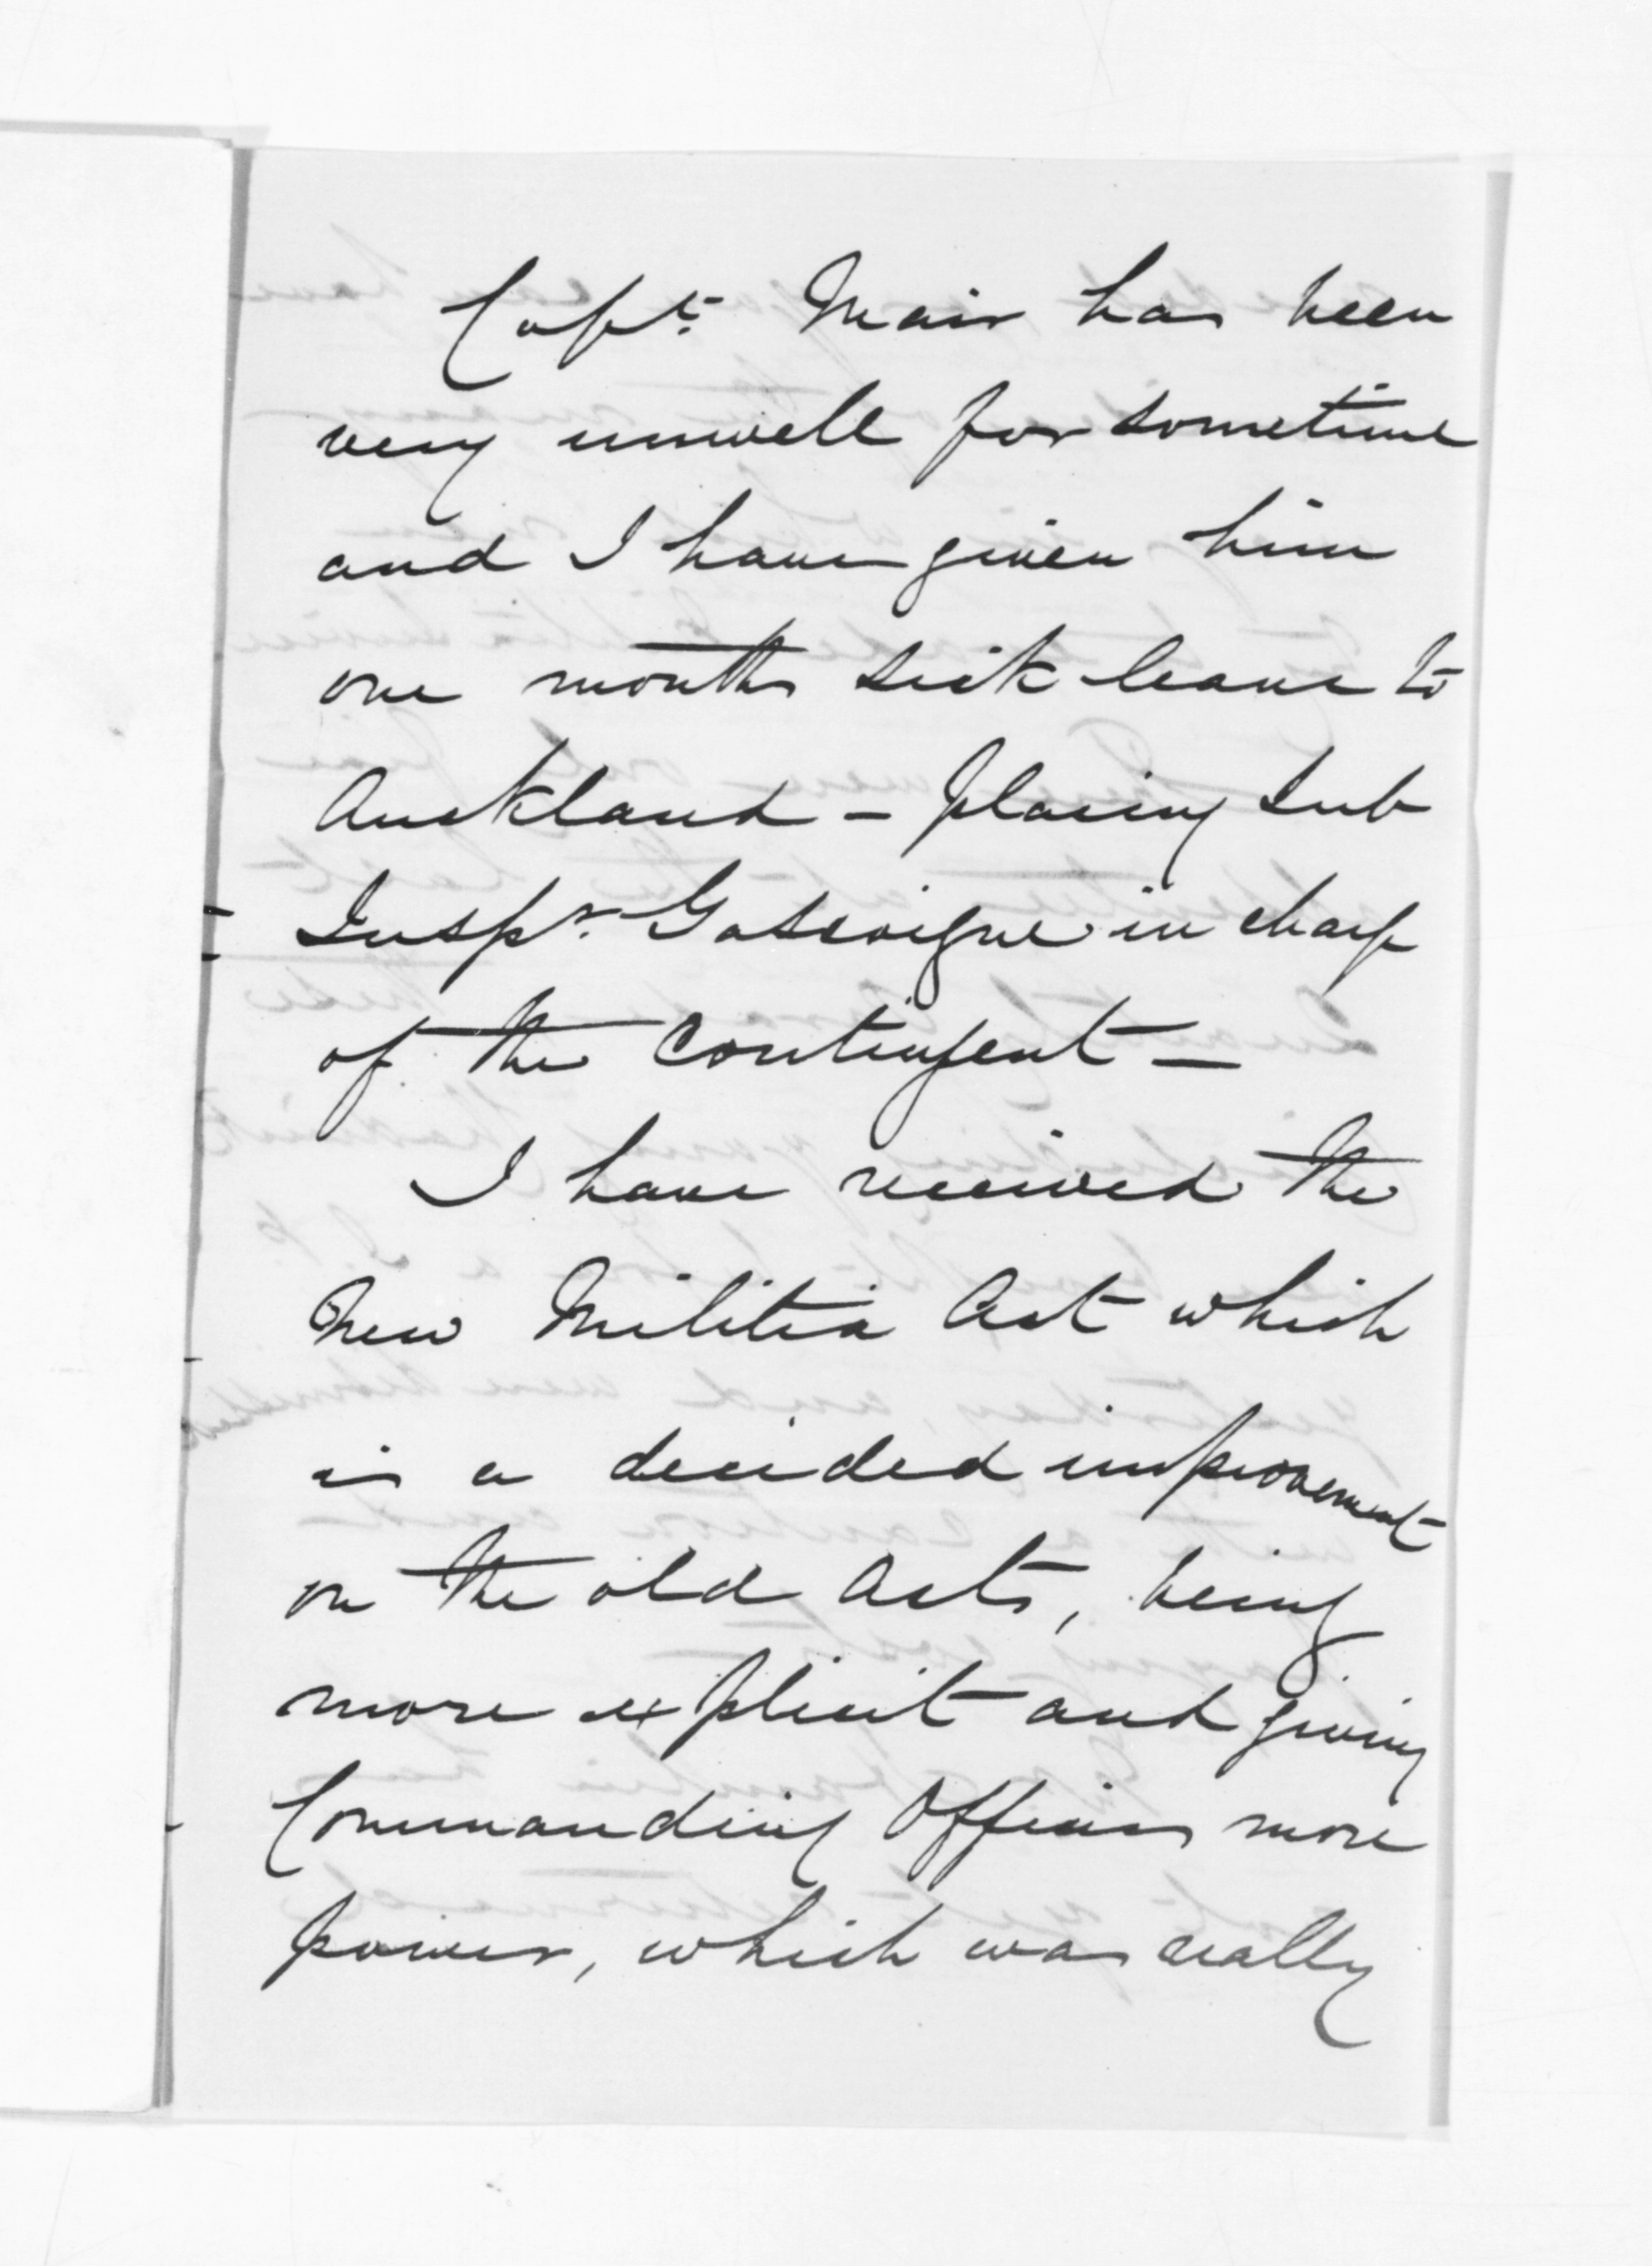 Capt. Mair has been
very unwell for sometime
and I have given him
one months sick leave to
Auckland - placing Sub
Inspr. Gascoigne in charge
of the Contingent -
I have received the
New Militia Act which
is a decided improvement
on the old Acts, being
more explicit and giving
Commanding Officers more
power, which was really